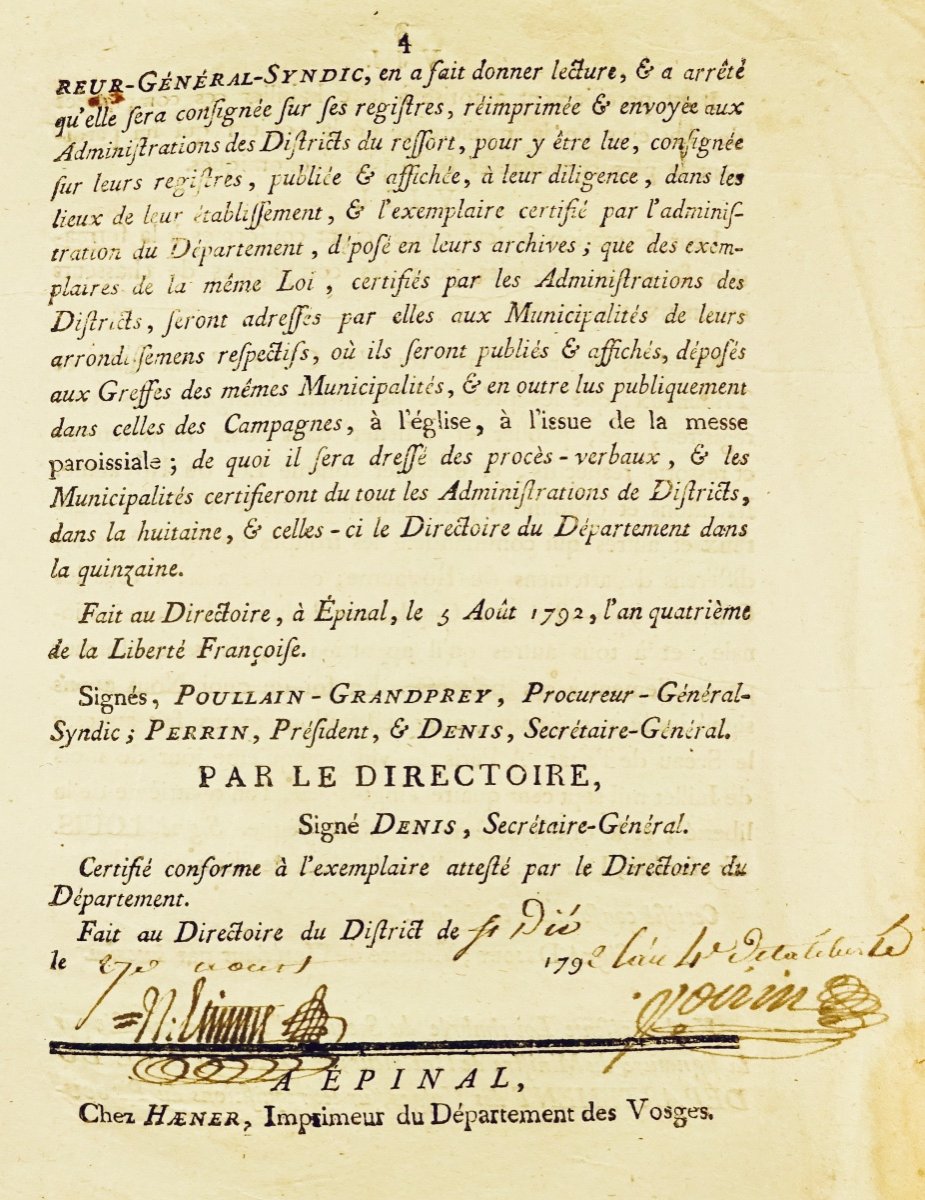 4
REUR-GÉNÉRAL-SYNDIC, en a fait donner lecture, & a arrêté
qu'elle ſera conſignée ſur ſes regiſtres, réimprimée & envoyée aux
Adminiſtrations des Diſtricts du reſſort, pour y être lue, conſignée
ſur leurs regiſtres, publiée & affichée, à leur diligence, dans les
lieux de leur établiſſement, & l'exemplaire certifié par l'adminiſ-
tration du Département, dépoſé en leurs archives; que des exem-
plaires de la même Loi, certifiés par les Adminiſtrations des
Diſtricts, ſeront adreſſés par elles aux Municipalités de leurs
arrondiſſemens reſpectifs, où ils ſeront publiés & affichés, dépoſés
aux Greffes des mêmes Municipalités, & en outre lus publiquement
dans celles des Campagnes, à l'église, à l'issue de la messe
paroissiale; de quoi il ſera dreſſé des procès-verbaux, & les
Municipalités certifieront du tout les Adminiſtrations de Diſtricts,
dans la huitaine, & celles-ci le Directoire du Département dans
la quinzaine.
Fait au Directoire, à Épinal, le 5 Août 1792, l'an quatrième
de la Liberté Françoiſe.
Signés, POULLAIN-GRANDPREY, Procureur-Général-
Syndic; PERRIN, Préſident, & DENIS, Secrétaire-Général.
PAR LE DIRECTOIRE,
Signé DENIS, Secrétaire-Général.
Certifié conforme à l'exemplaire atteſté par le Directoire du
Département.
Fait au Directoire du Diſtrict de St Dié
le 27e aoust 1792 l'an 4e de la liberté
Poirin
A ÉPINAL,
Chez HÆNER, Imprimeur du Département des Vosges.